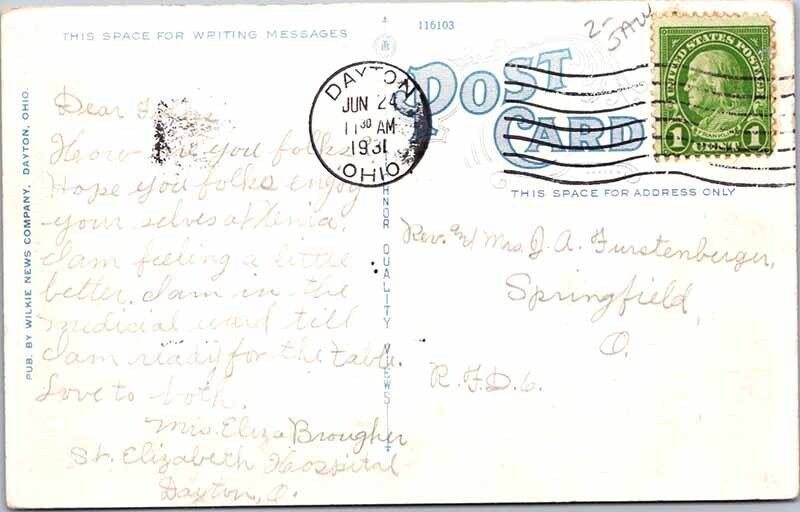 THIS SPACE FOR WRITING MESSAGES
116103
2-
POST
CARD
UNITED STATES POSTAGE
FRANKLIN
1 CENT 1
DAYTON
JUN 24
11 30 AM
1931
OHIO
THIS SPACE FOR ADDRESS ONLY
PUB. BY WILKIE NEWS COMPANY, DAYTON, OHIO.
QUALITY VIEWS
Dear
How are you folks
Hope you folks enjoy
your selves at Xenia.
I am feeling a little
better. I am in the
medicial ward till
I am ready for the table.
Love to both.
Mrs. Eliza Brougher
St. Elizabeth Hospital
Dayton, O.
Rev. and Mrs. J. A. Furstenberger,
Springfield,
O.
R. F. D. 6.